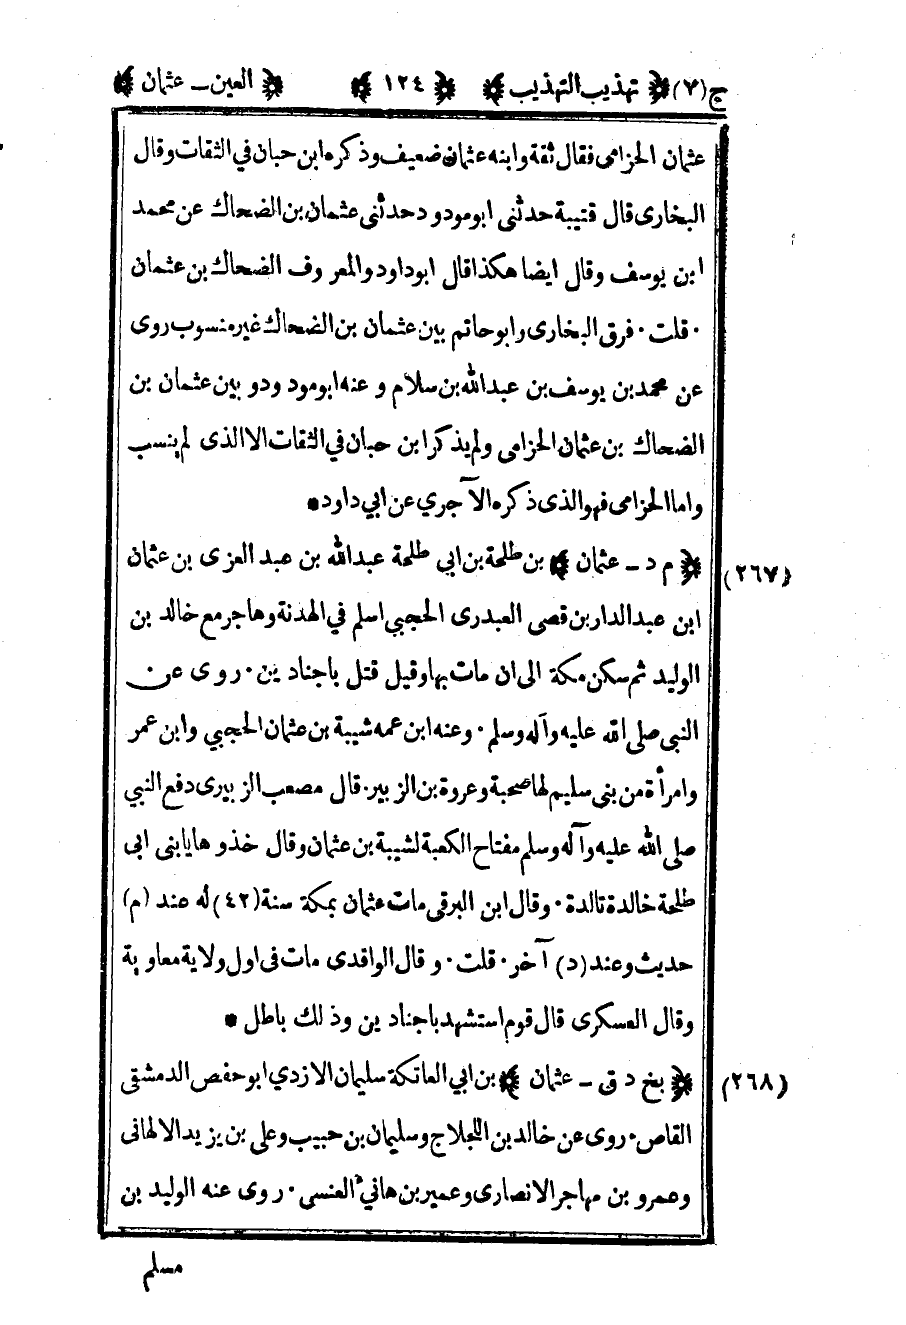 ج(٧) ﴿ تهذيب التهذيب ﴾ ﴿ ١٢٤ ﴾ ﴿ العين ــ عثمان ﴾
عثمان الحزامى فقال ثقة وابنه عثمان ضعيف وذكره ابن حبان في الثقات وقال
البخارى قال قتيبة حدثنى ابومودود حدثنى عثمان بن الضحاك عن محمد
ابن يوسف وقال ايضا هكذا قال ابوداود والمعروف الضحاك بن عثمان
٠ قلت ٠ فرق البخارى وابوحاتم بين عثمان بن الضحاك غير منسوب روى
عن محمد بن يوسف بن عبدالله بن سلام و عنه ابومودود وبين عثمان بن
الضحاك بن عثمان الحزامى ولم يذكر ابن حبان في الثقات الا الذى لم ينسب
واما الحزامى فهو الذى ذكره الآجري عن ابي داود *
(٢٦٧) ﴿ م د ــ عثمان ﴾ بن طلحة بن ابي طلحة عبدالله بن عبد العزى بن عثمان
ابن عبدالدار بن قصى العبدرى الحجبي اسلم في الهدنة وهاجر مع خالد بن
الوليد ثم سكن مكة الى ان مات بها وقيل قتل باجنادين ٠ روى عن
النبى صلى الله عليه وآله وسلم ٠ وعنه ابن عمه شيبة بن عثمان الحجبي وابن عمر
وامرأة من بنى سليم لها صحبة وعروة بن الزبير ٠ قال مصعب الزبيرى دفع النبي
صلى الله عليه وآله وسلم مفتاح الكعبة لشيبة بن عثمان وقال خذوها يابنى ابى
طلحة خالدة تالدة ٠ وقال ابن البرقى مات عثمان بمكة سنة (٤٢) له عند (م)
حديث وعند (د) آخر ٠ قلت ٠ و قال الواقدى مات فى اول ولاية معاوية
وقال العسكرى قال قوم استشهد باجنادين وذلك باطل *
(٢٦٨) ﴿ بخ د ق ــ عثمان ﴾ بن ابي العاتكة سليمان الازدي ابوحفص الدمشقى
القاص ٠ روى عن خالد بن اللجلاج وسليمان بن حبيب وعلى بن يزيد الالهانى
وعمرو بن مهاجر الانصارى وعمير بن هانئ العنسى ٠ روى عنه الوليد بن
مسلم